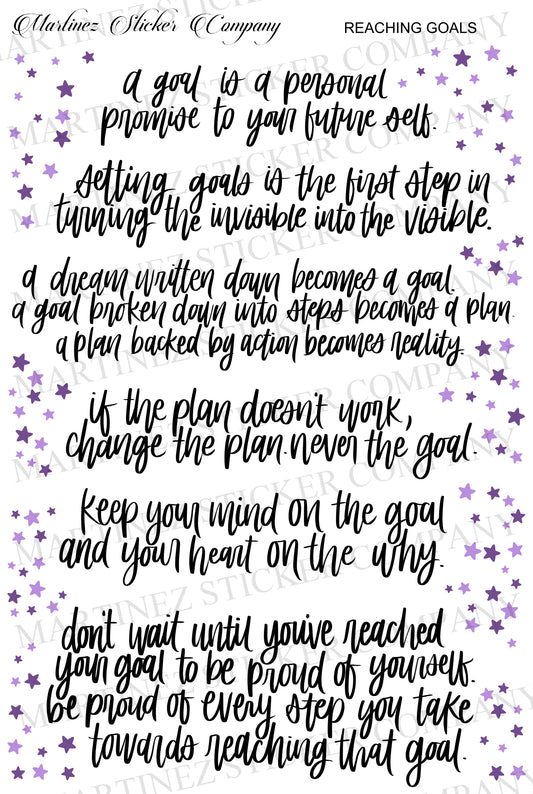 Martinez Sticker Company
REACHING GOALS
a goal is a personal
promise to your future self.
setting goals is the first step in
turning the invisible into the visible.
a dream written down becomes a goal.
a goal broken down into steps becomes a plan.
a plan backed by action becomes reality.
if the plan doesn't work,
change the plan. never the goal.
keep your mind on the goal
and your heart on the why.
don't wait until you've reached
your goal to be proud of yourself.
be proud of every step you take
towards reaching that goal.
MARTINEZ STICKER COMPANY
MARTINEZ STICKER COMPANY
MARTINEZ STICKER COMPANY
MARTINEZ STICKER COMPANY
MARTINEZ STICKER COMPANY
MARTINEZ STICKER COMPANY
MARTINEZ STICKER COMPANY
MARTINEZ STICKER COMPANY